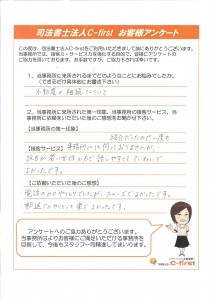 司法書士法人C-first お客様アンケート
この度は、司法書士法人C-firstをご利用いただきまして誠にありがとうございます。
当事務所では、接客・サービスの充実を図る目的で、皆様にアンケートの
ご協力を頂いております。お手数ですが、ご協力下されば幸いです。
1、当事務所に来所されるまでどのようなことにお悩みでしたか。
(できるだけ具体的にお書き下さい)
不動産の相続について
2、当事務所に来所された第一印象、当事務所の接客サービス、当
事務所に依頼をいただいた後のご感想をお聞かせ下さい。
【当事務所の第一印象】
紹介だったので
【接客サービス】事務所には伺っておりませんが、
話しやすくていねいで
よかったです。
【ご依頼いただいた後のご感想】
電話のみのやりとりでしたが、スムーズでよかったです。
郵送でのやりとりも楽でよかったです。
アンケートへのご協力ありがとうございます。
当事務所はよりお客様にご満足いただける事務所を
目指して、今後もスタッフ一同精進してまいります。
司法書士法人 C-first